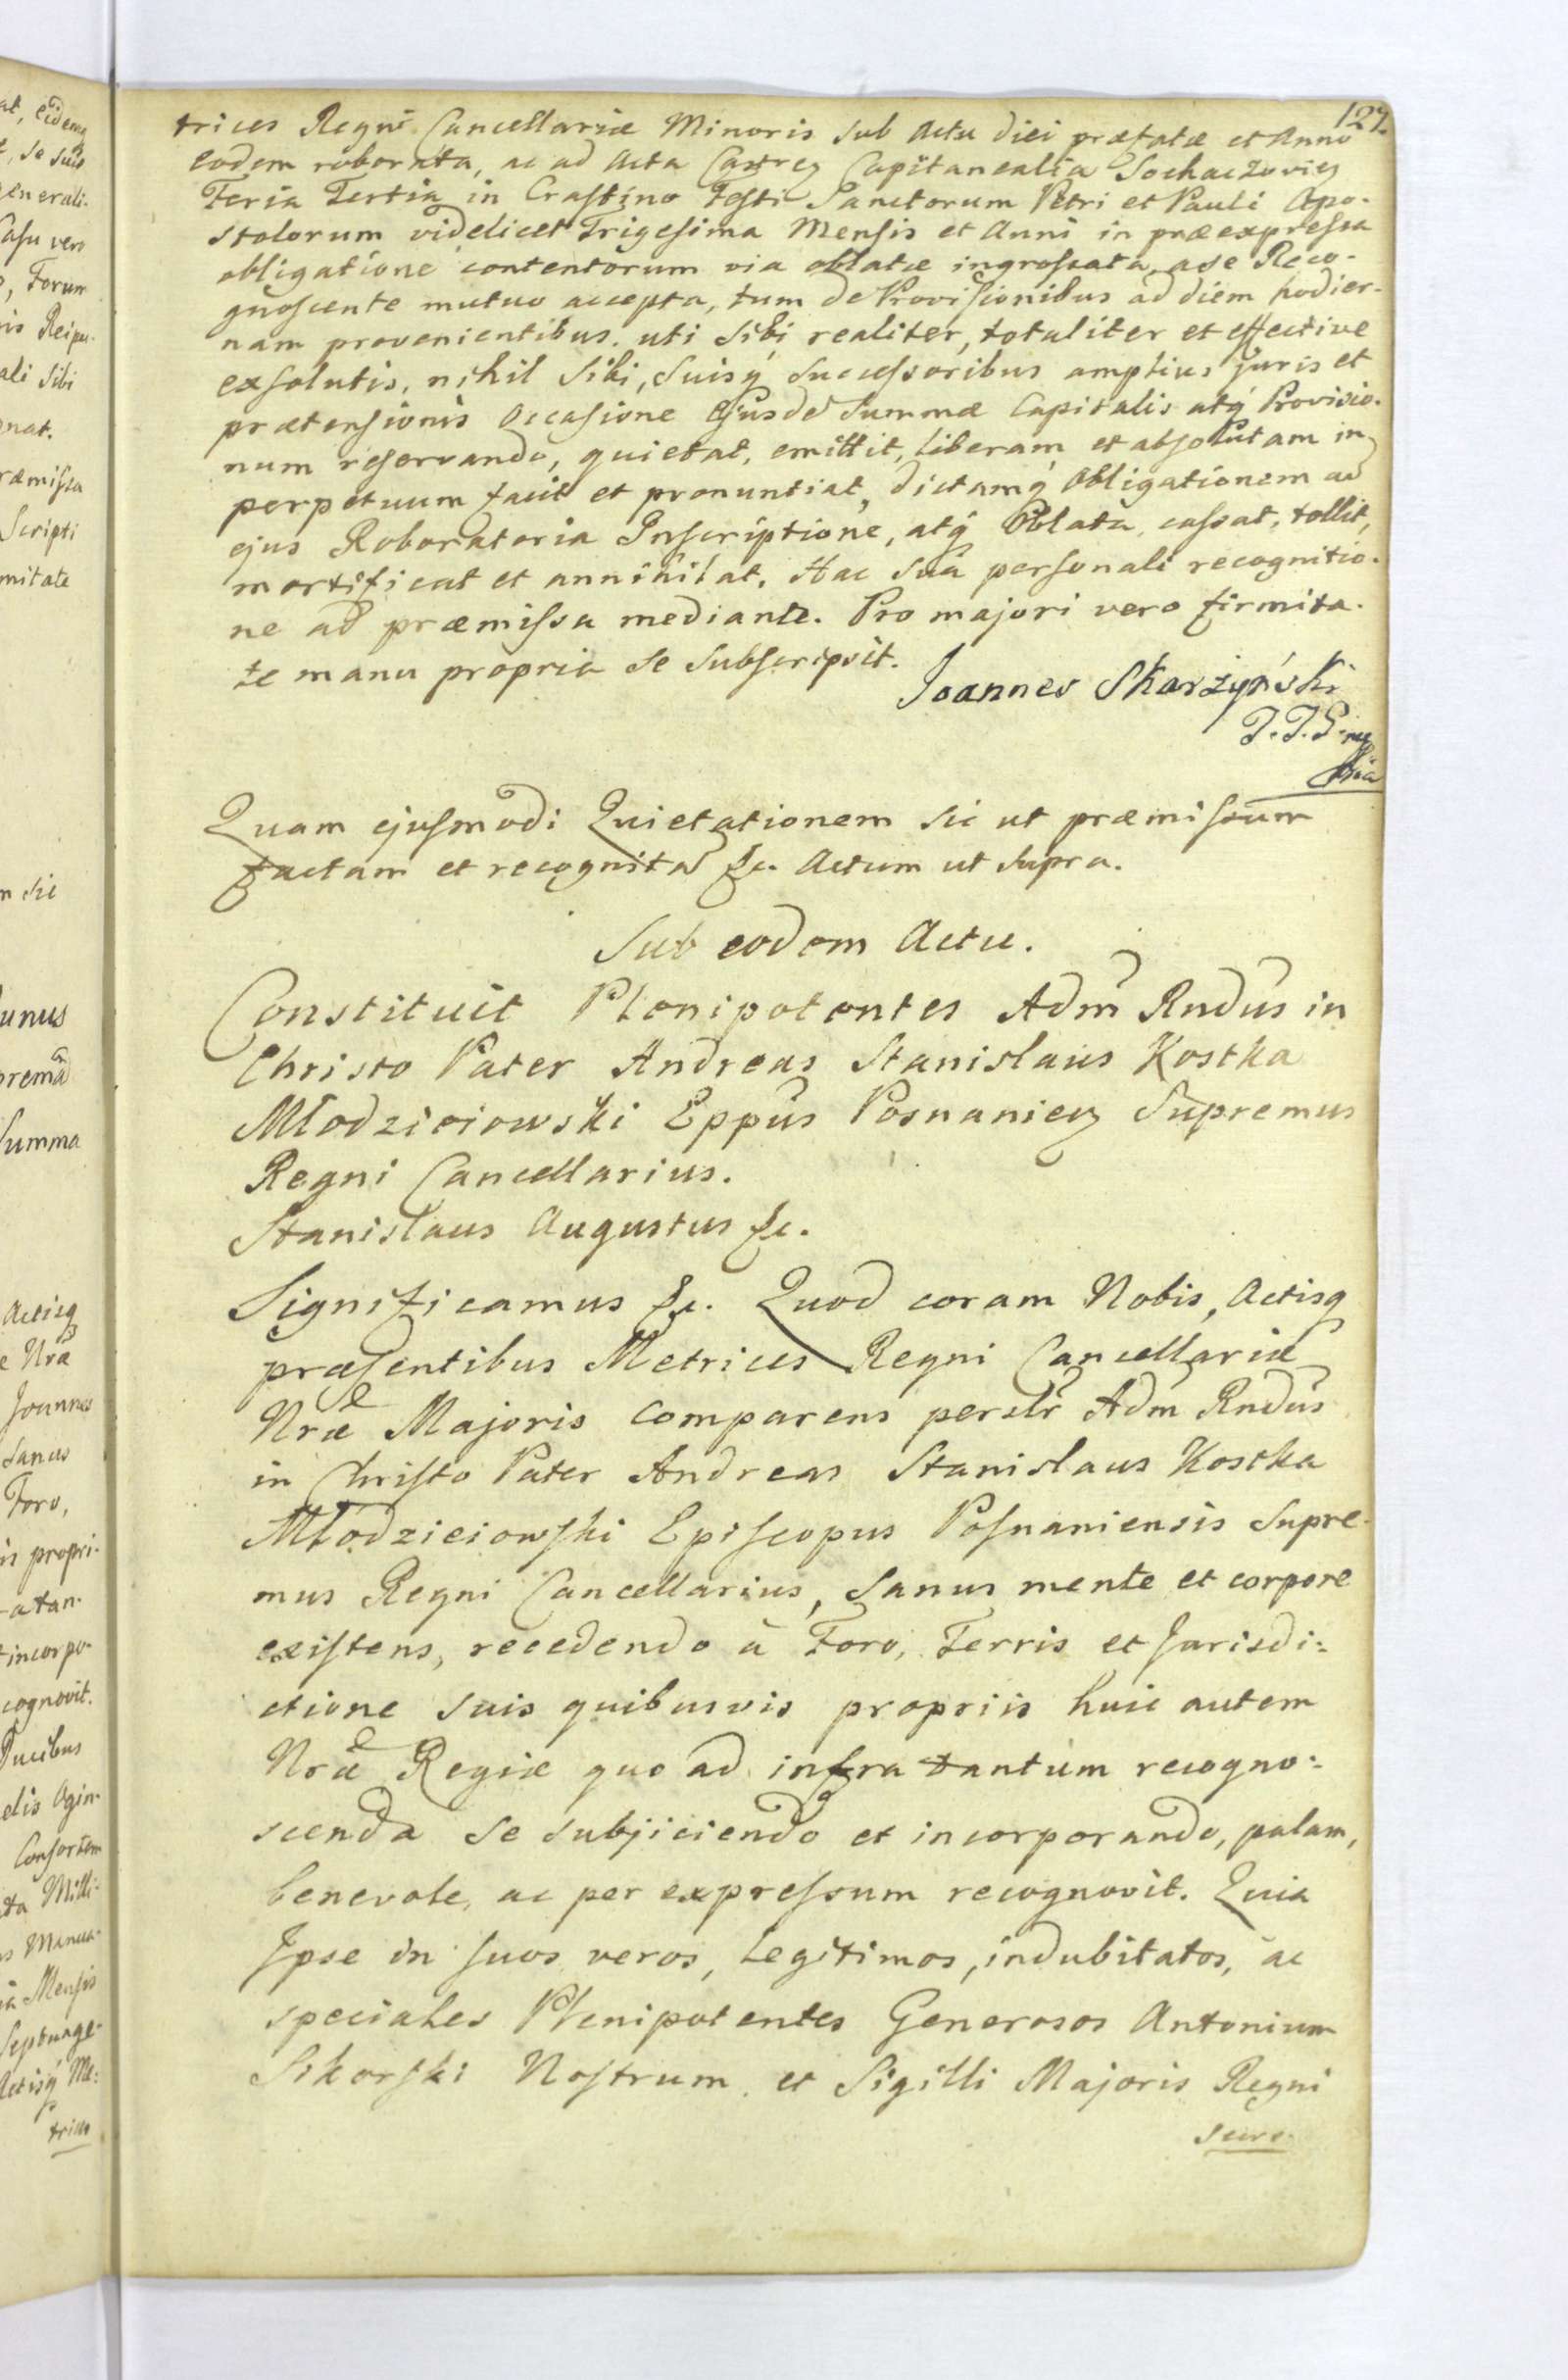 127.
trices Regni Cancellariæ Minoris sub Actu diei præfatæ et Anno
eodem roborata, ac ad Acta Castreṅ Capitanealia Sochaczovieṅ
Feria Tertia in Crastino Festi Sanctorum Petri et Pauli Apo-
stolorum videlicet Trigesima Mensis et Anni in præexpressa
obligatione contentorum via oblatæ ingrossata, a se Reco-
gnoscente mutuo accepta, tum de Provisionibus ad diem hodier-
nam provenientibus. uti sibi realiter, totaliter et effective
exsolutis, nihil sibi, suisq́ Successoribus amplius juris et
prætensionis occasione Ejusdē Summæ Capitalis atq́ Provisio-
num reservando, quietat, emittit, liberam et absolutam in
perpetuum facit et pronuntiat, dictamq́ Obligationem ac
ejus Roboratoria Inscriptione, atq́ Oblata cassat, tollit,
mortificat et annihilat. Hac suâ personali recognitio-
ne ad præmissa mediante. Pro majori vero firmita-
te manu propria se subscripsit.
Joannes Skarżyński
Quam ejusmodi Quietationem sic ut præmissum
factam et recognitā &c. Actum ut supra.
Sub eodem Actu.
Constituit Plenipotentes Adm̃ Rndus̃ in
Christo Pater Andreas Stanislaus Kostka
Młodzieiowski Eppus̃ Posnanieṅ Supremus
Regni Cancellarius.
Stanislaus Augustus &c.
Significamus &c. Quod coram Nobis, Actisq
præsentibus Metrices Regni Cancellariæ
Nræ̃ Majoris comparens persl̃r Adm̃ Rndus̃
in Christo Pater Andreas Stanislaus Kostka
Młodzieiowski Episcopus Posnaniensis Supre-
mus Regni Cancellarius, sanus mente et corpore
existens, recedendo à Foro, Terris et Jurisdi:
ctione suis quibusvis propriis huic autem
Nræ̃ Regiæ quo ad infra tantum recogno:
scenda se subjiciendo et incorporando, palam,
benevole, ac per expressum recognovit. Quia
Ipse in suos veros, legitimos, indubitatos, ac
speciales Plenipotentes Generosos Antonium
Sikorski Nostrum et Sigilli Majoris Regni
Secre-